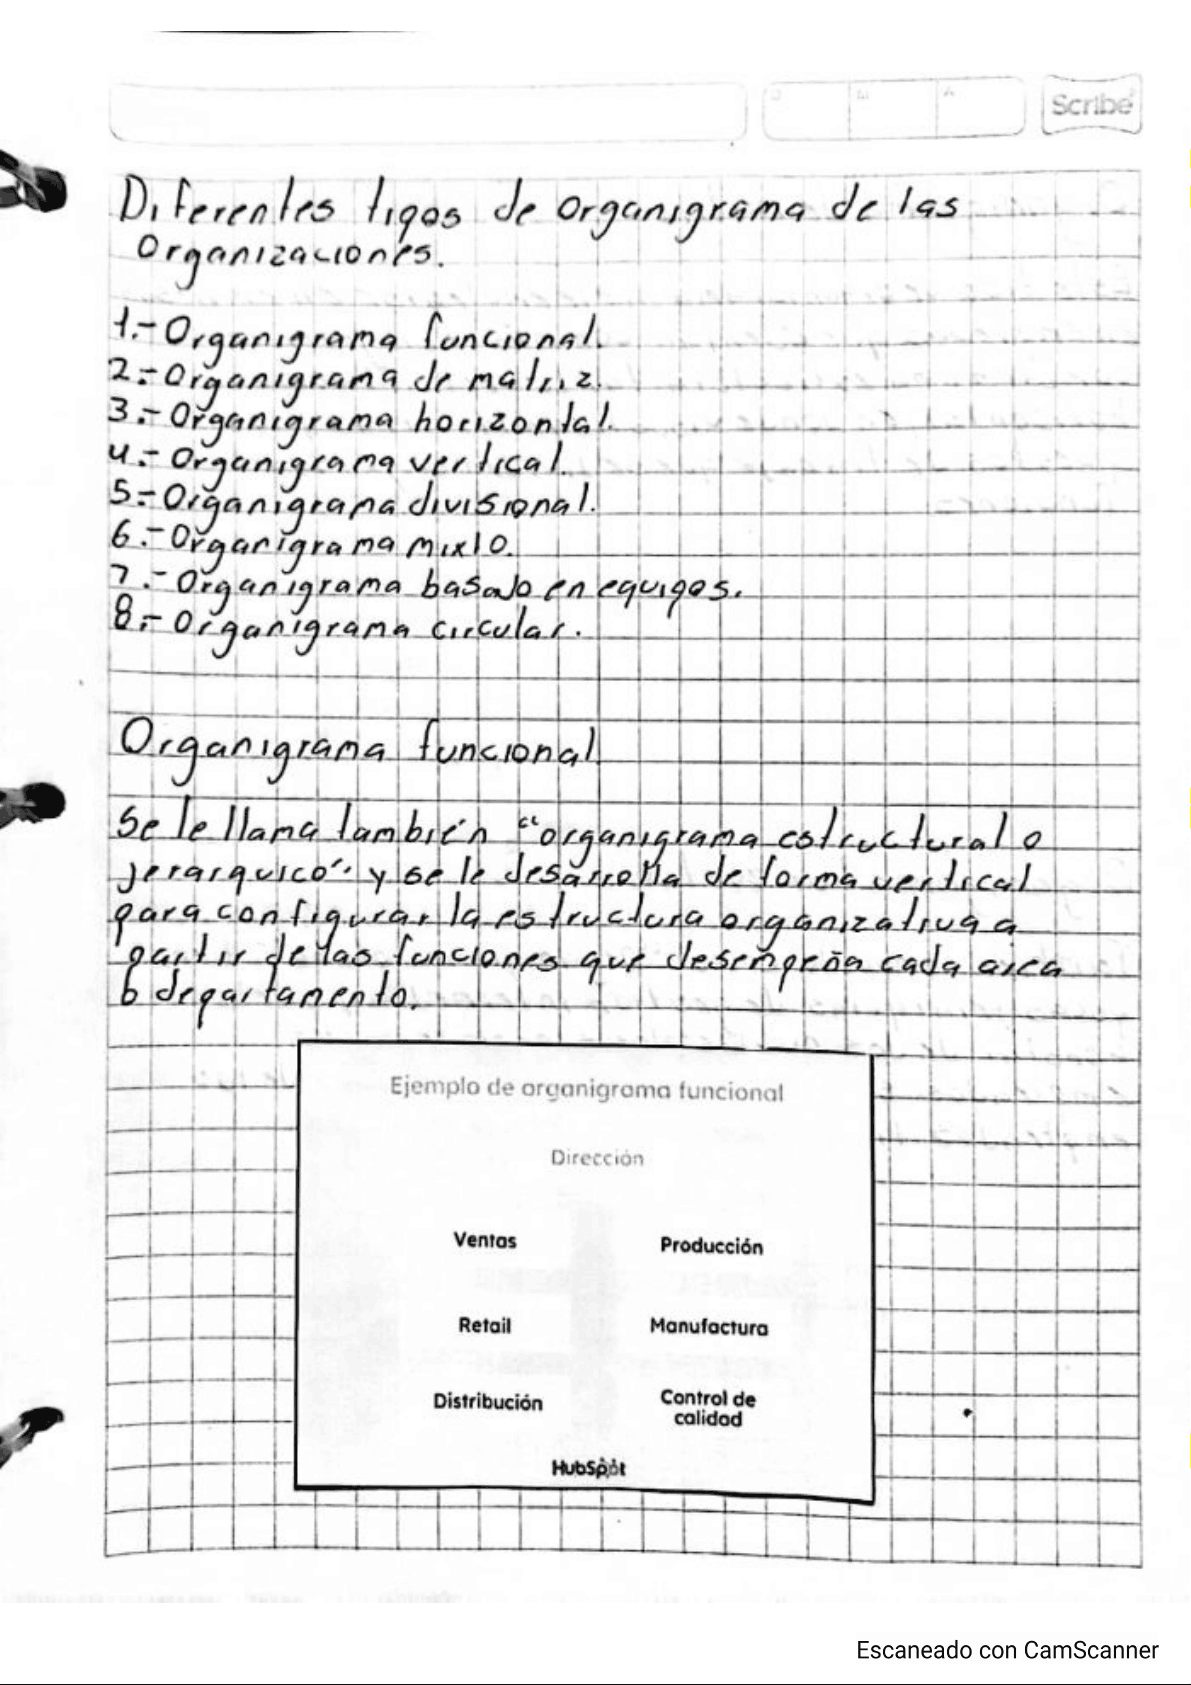 Scribe
Diferentes tipos de organigrama de las
Organizaciones.
1.- Organigrama funcional.
2.- Organigrama de matriz.
3.- Organigrama horizontal.
4.- Organigrama vertical.
5.- Organigrama divisional.
6.- Organigrama mixto.
7.- Organigrama basado en equipos.
8.- Organigrama circular.
Organigrama funcional
Se le llama también "organigrama estructural o
jerarquico" y se le desarrolla de forma vertical
para configurar la estructura organizativa a
partir de las funciones que desempeña cada area
o departamento.
Ejemplo de organigrama funcional
Dirección
Ventas Producción
Retail Manufactura
Distribución Control de
calidad
HubSpot
Escaneado con CamScanner